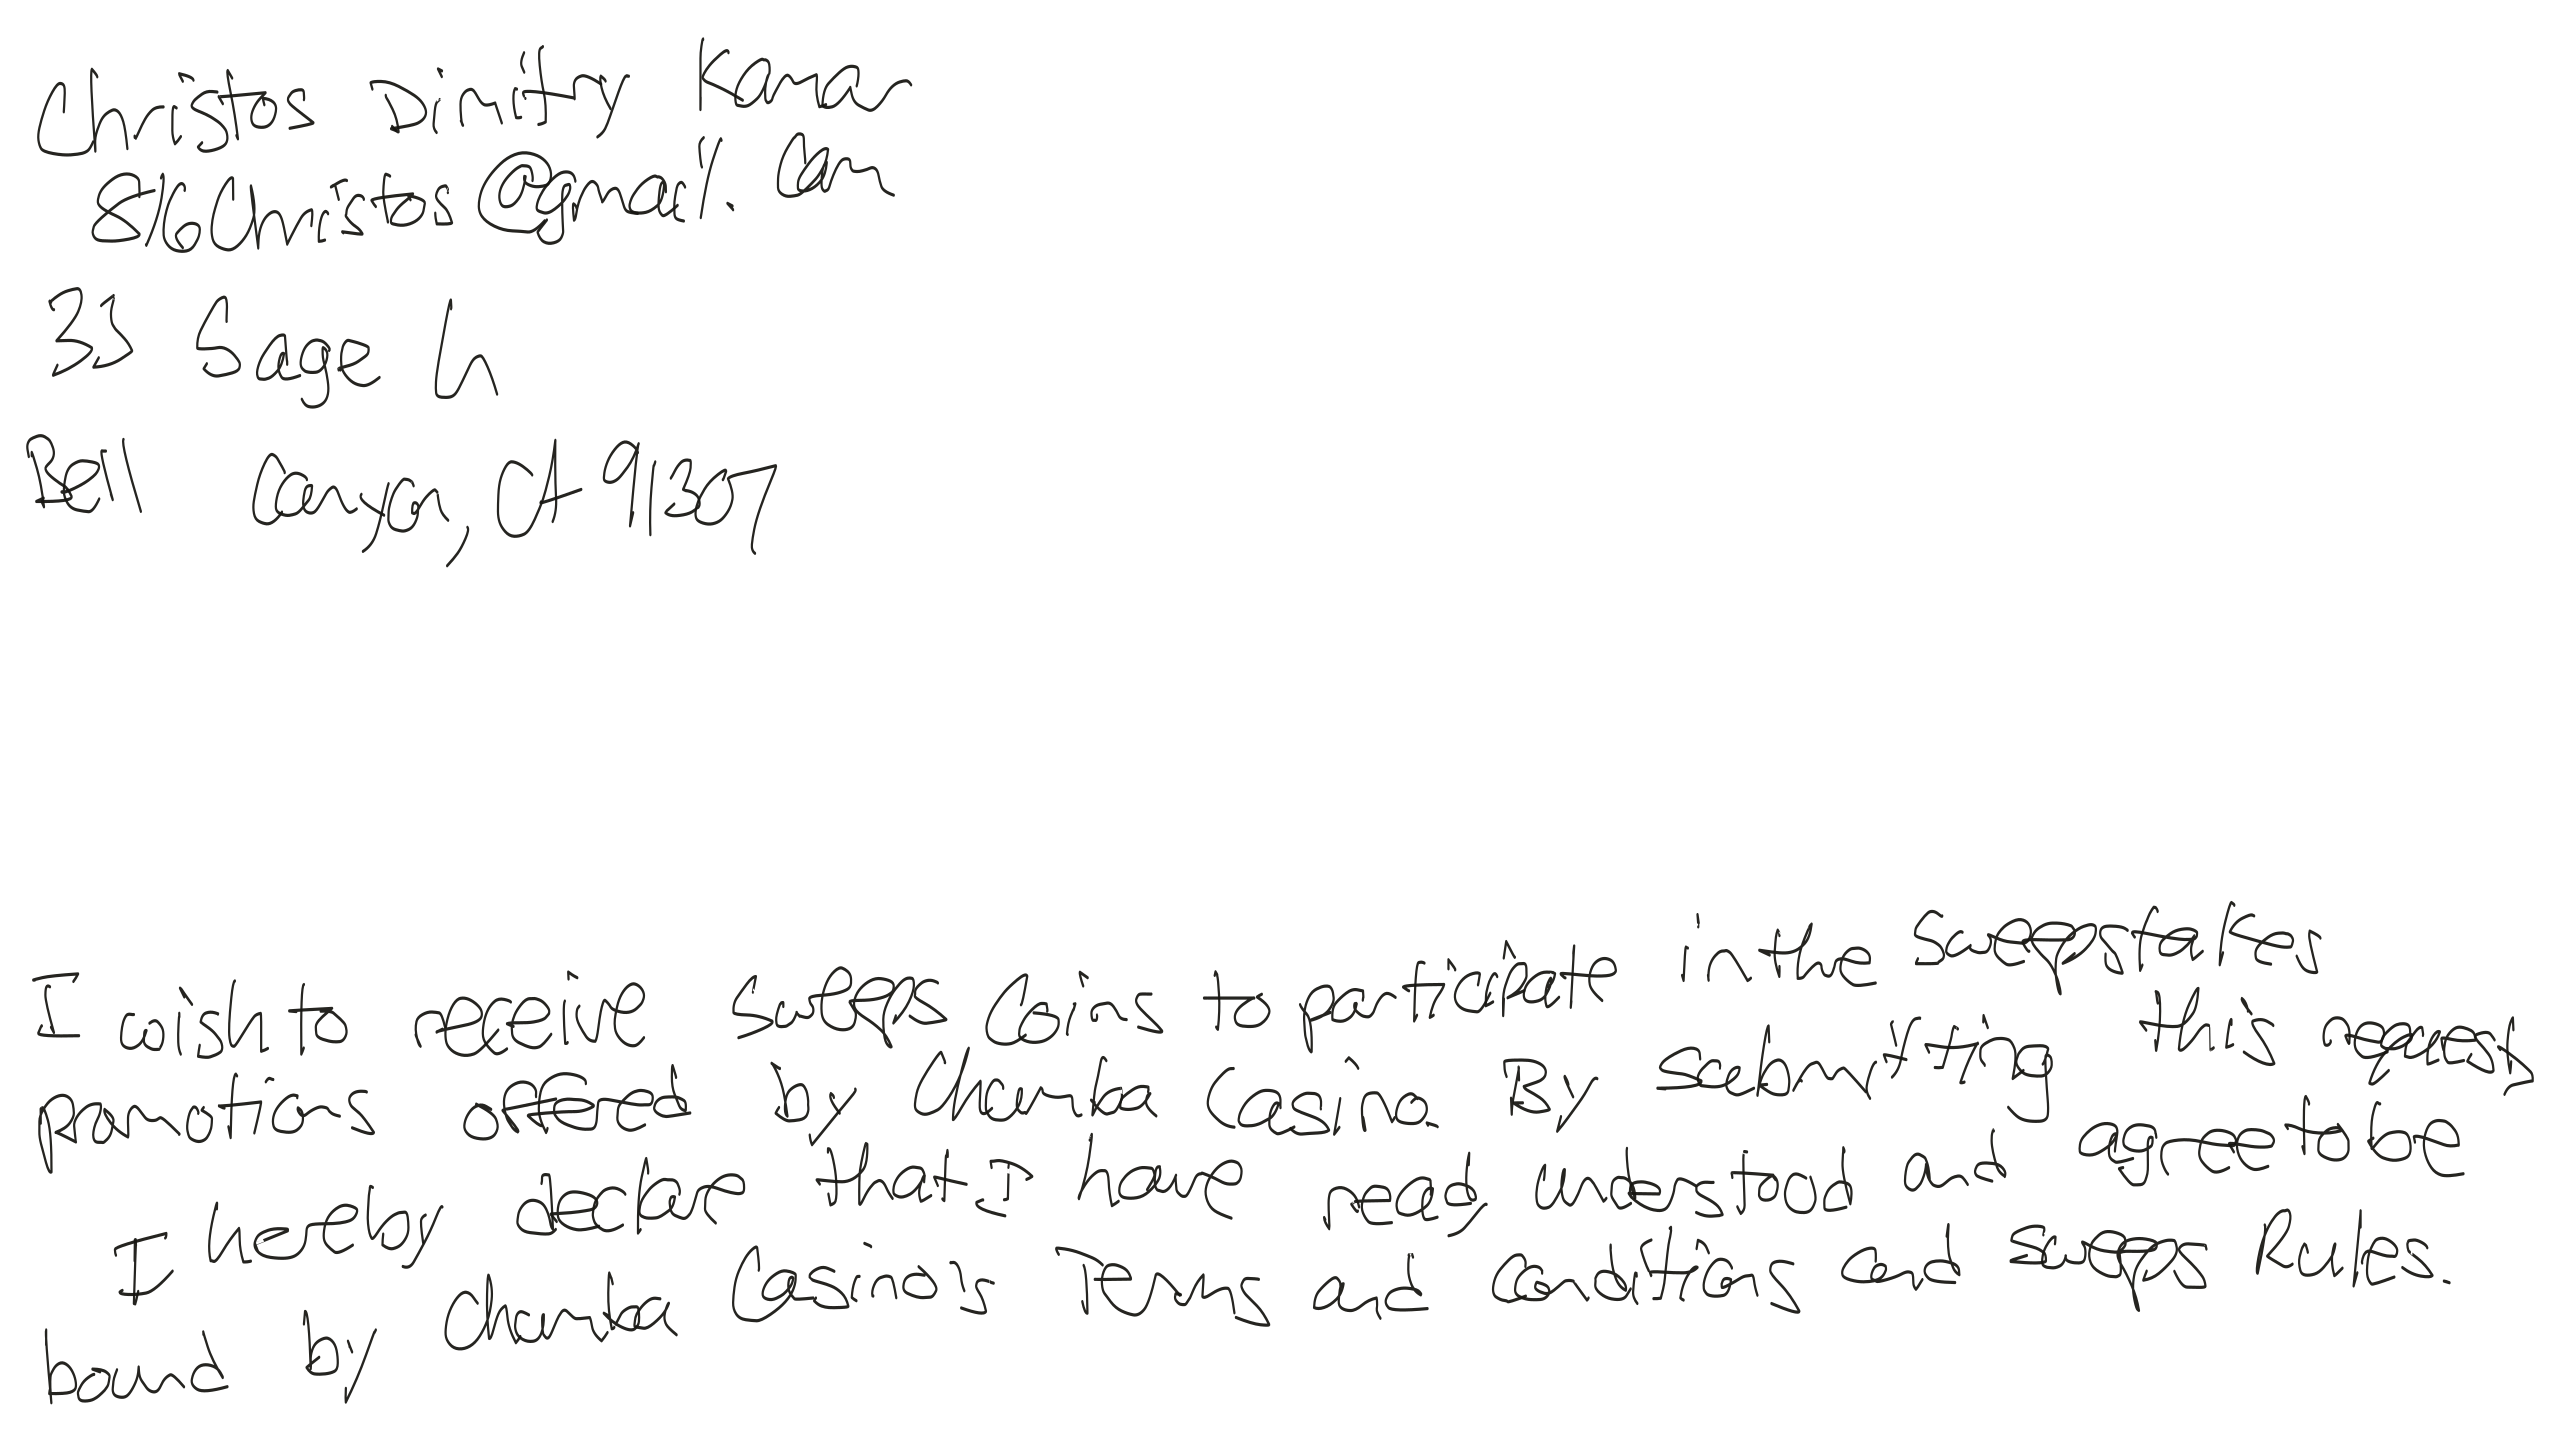 Christos Dimitry Kamar
816Christos@gmail.com
33 Sage Ln
Bell Canyon, CA 91307
I wish to receive Sweeps Coins to participate in the sweepstakes
promotions offered by Chumba Casino. By submitting this request,
I hereby declare that I have read, understood and agree to be
bound by Chumba Casino's Terms and Conditions and Sweeps Rules.